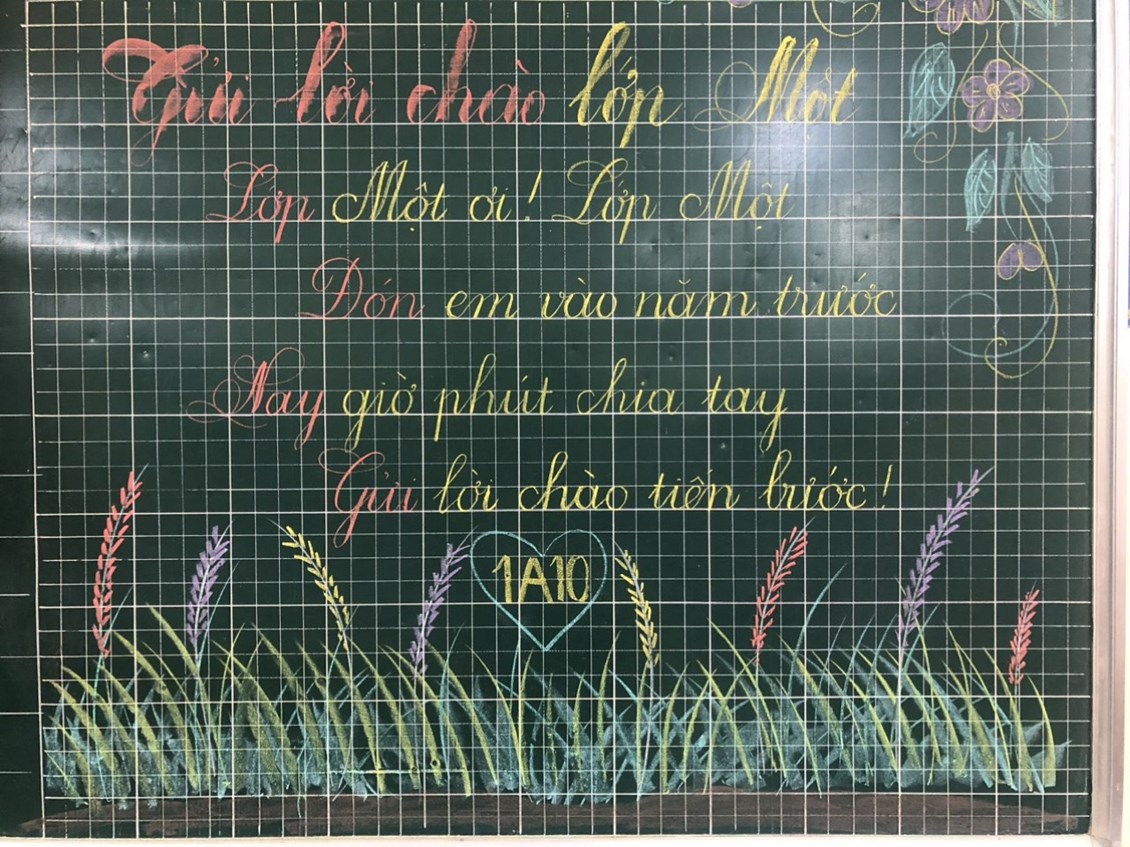 Gửi lời chào lớp Một
Lớp Một ơi! Lớp Một
Đón em vào năm trước
Nay giờ phút chia tay
Gửi lời chào tiến bước!
1A10